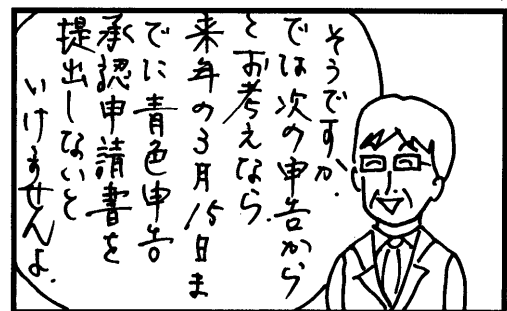 そうですか.
では次の申告から
とお考えなら.
来年の3月15日ま
でに青色申告
承認申請書を
提出しないと
いけませんよ.